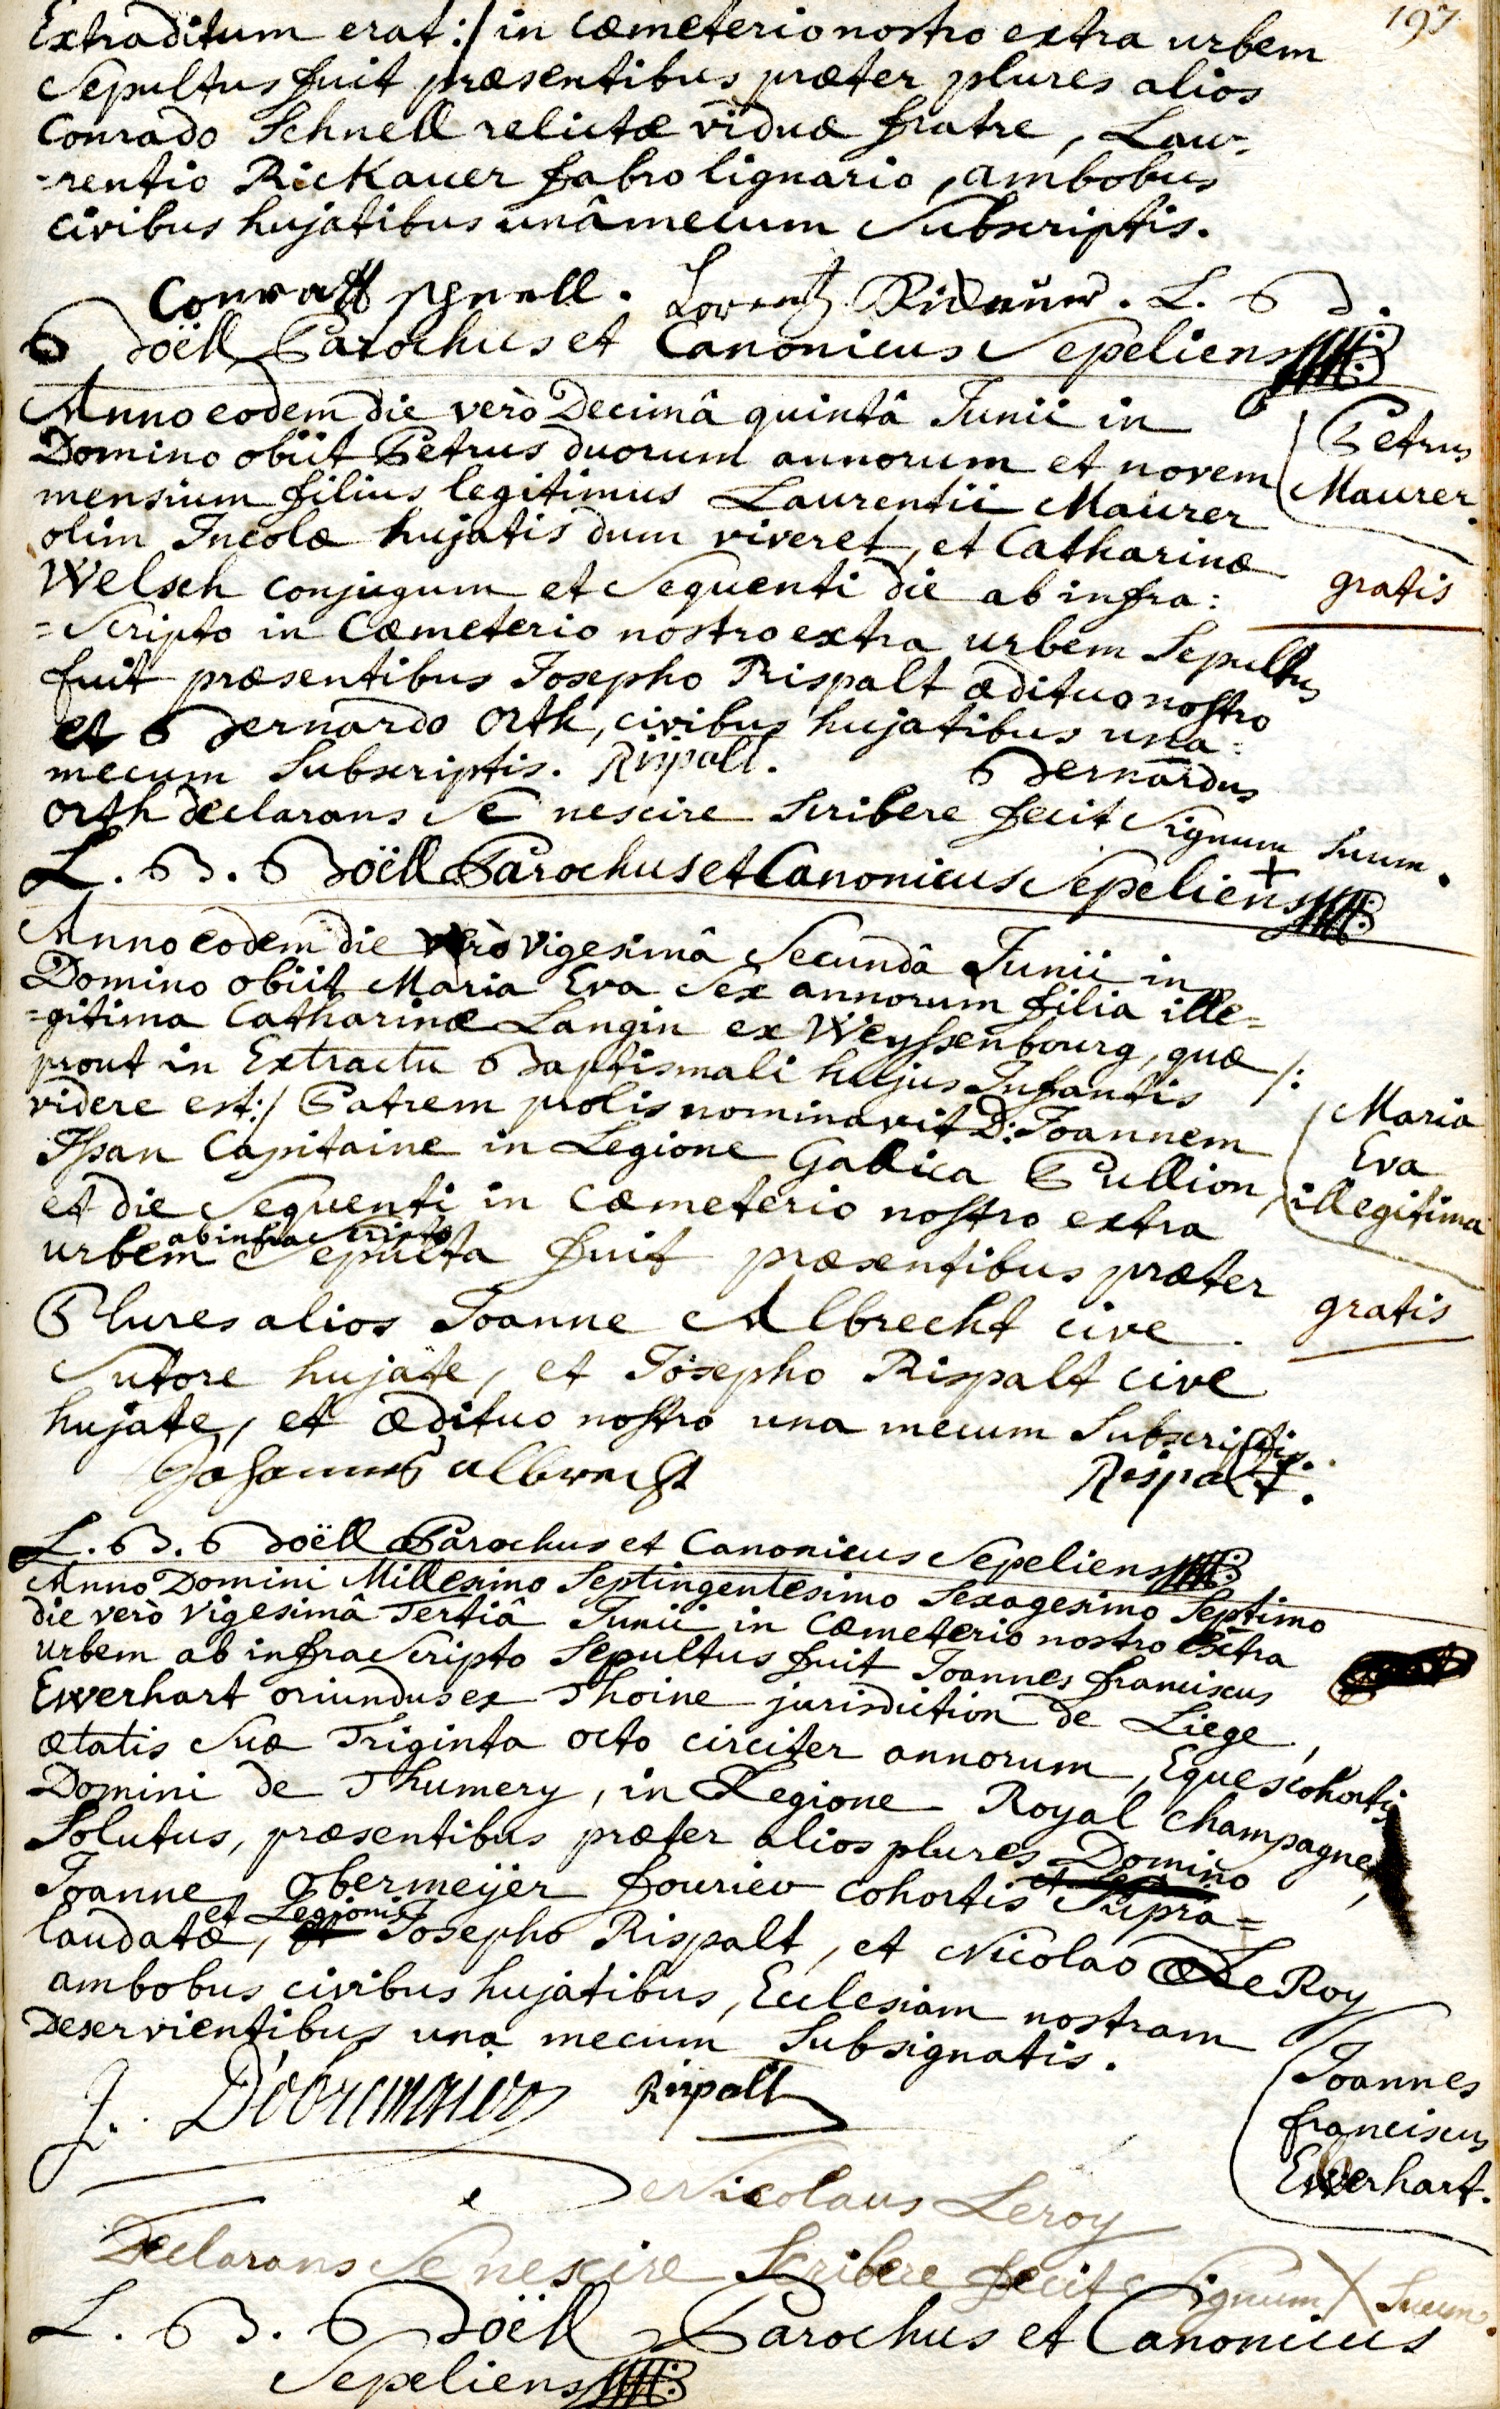 197
Extraditum erat :/ in cæmeterio nostro extra urbem
Sepultus fuit præsentibus præter plures alios
Conrado Schnell relictæ viduæ fratre, Lau-
-rentio Rickauer fabro lignario, ambobus
civibus hujatibus unâ mecum Subscriptis.
Conradt schnell. Lorentz Rickauer. L. B
Boëll Parochus et Canonicus Sepeliens
Anno eodem die verò Decimâ quintâ Junii in
Domino obiit Petrus duorum annorum et novem
mensium filius legitimus Laurentii Maurer
olim Incolæ hujatis dum viveret, et Catharinæ
Welsch conjugum et Sequenti die ab infra:
=Scripto in Cæmeterio nostro extra urbem Sepultus
fuit præsentibus Josepho Rispalt ædituo nostro
et Bernardo Orth, civibus hujatibus una:
mecum Subscriptis. Rispalt. Bernardus
Orth declarans Se nescire Scribere fecit Signum + Suum.
L. B. Boëll Parochus et Canonicus Sepeliens
Petrus
Maurer.
gratis
Anno eodem die verò vigesimâ Secundâ Junii in
Domino obiit Maria Eva Sex annorum filia ille=
=gitima Catharinæ Langin ex Weyssenbourg, quæ /:
prout in Extractu Baptismali hujus Infantis
videre est :/ Patrem prolis nominavit D: Joannem
Issan Capitaine in Legione Gallica Pullion,
et die Sequenti in Cæmeterio nostro extra
urbem ab infra Scripto Sepulta fuit præsentibus præter
Plures alios Joanne Albrecht cive
Sutore hujate, et Josepho Rispalt cive
hujate, et ædituo nostro una mecum Subscriptis.
Johannes albrecht Rispalt.
L. B. Boëll Parochus et Canonicus Sepeliens
Maria
Eva
illegitima
gratis
Anno Domini Millesimo Septingentesimo Sexagesimo Septimo
die verò vigesimâ Tertiâ Junii in Cæmeterio nostro extra
urbem ab infra Scripto Sepultus fuit Joannes franciscus
Ewerhart oriundus ex Thoine jurisdiction de Liege,
ætatis Suæ Triginta octo circiter annorum, Eques cohortis
Domini de Thumery, in Legione Royal Champagne,
Solutus, præsentibus præter alios plures Domino
Joanne Obermeÿer fourier cohortis Supra=
laudatæ, et Legionis Josepho Rispalt, et Nicolao Le Roy
ambobus civibus hujatibus, Ecclesiam nostram
Deservientibus una mecum Subsignatis.
J. Rispalt
Nicolaus Leroy
Declarans Se nescire Scribere fecit Signum X Suum.
L. B. Boëll Parochus et Canonicus
Sepeliens
Joannes
franciscus
Ewerhart.